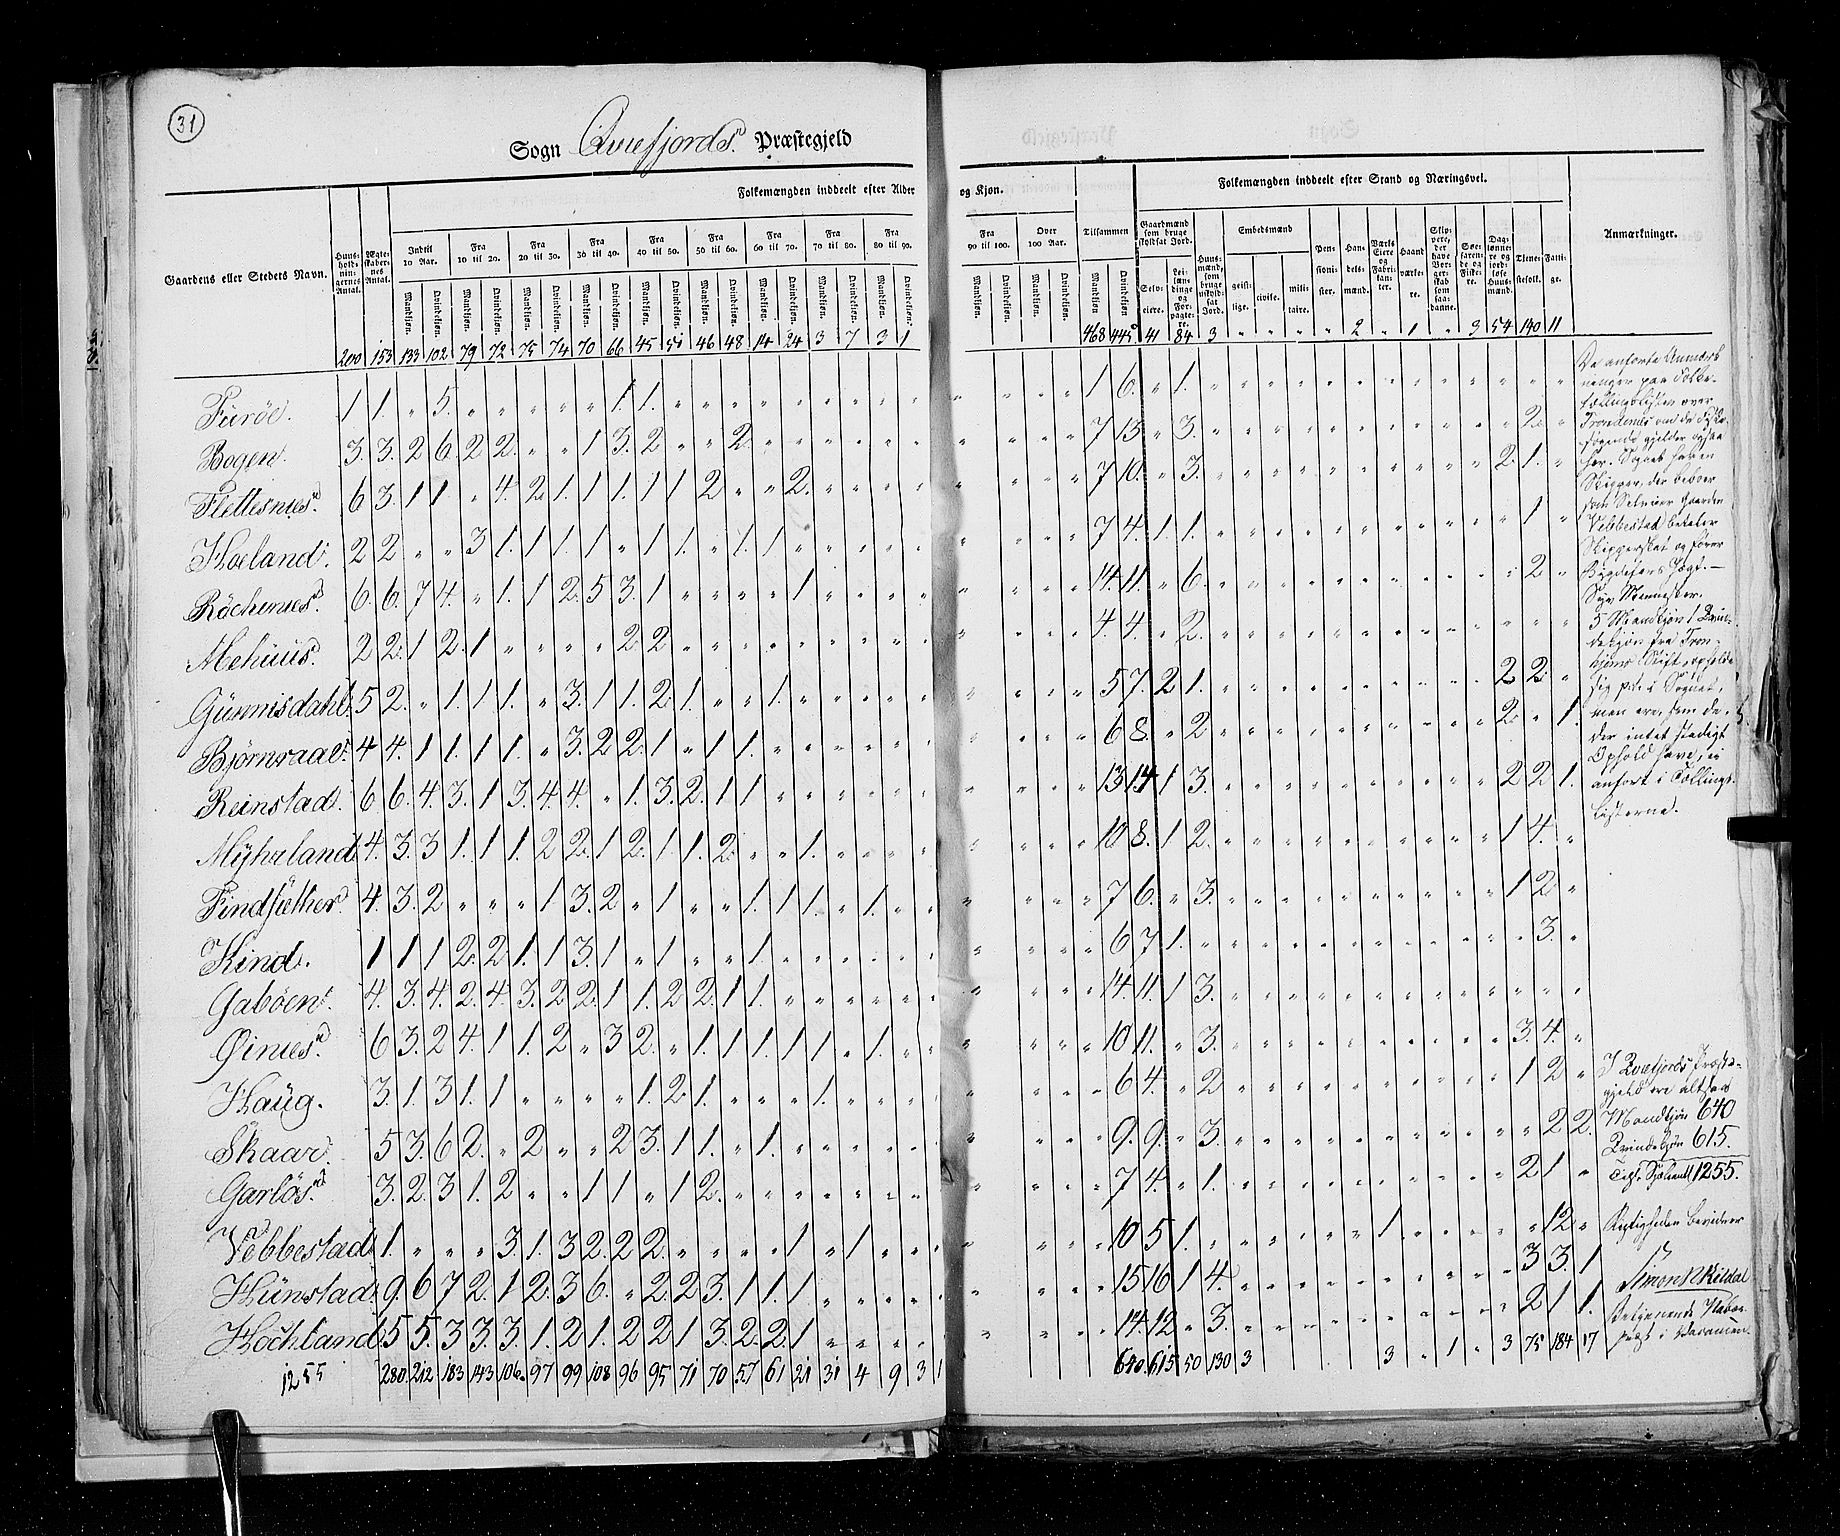 31
Sogn Qviefjords Præstegjeld
Folkemængden inddeelt efter Alder og Kjøn.
Folkemængden inddeelt efter Stand og Næringsvei.
Gaardens eller Stedets Navn.
Huusholdningernes Antal.
Ægteskabernes Antal.
Indtil 10 Aar.
Fra 10 til 20.
Fra 20 til 30.
Fra 30 til 40.
Fra 40 til 50.
Fra 50 til 60.
Fra 60 til 70.
Fra 70 til 80.
Fra 80 til 90.
Fra 90 til 100.
Over 100 Aar.
Tilsammen
Mandkjøn. Qvindekjøn.
Gaardmænd som bruge skyldsat Jord.
Selveiere.
Leilændinge og Forpagtere.
Huusmænd, som bruge uskyldsat Jord.
Embedsmænd
geistlige. civile. militaire.
Pensionister.
Handelsmænd.
Værks Eiere og Fabrikanter.
Haandværkere.
Skippere, der have Borgerskab som saadanne.
Søefarende og Fiskere.
Daglønnere og jordløse Huusmænd.
Tjenestefolk.
Fattige.
Anmærkninger.
200 153 133 102 79 72 75 74 70 66 45 51 46 48 14 24 3 7 3 1 468 445 41 84 3 " " " " 2 " 1 " 3 54 140 11
Furöe. 1 1. " 5. " " " " " 1. 1. 1 6. " 1.
Bogen. 3. 3. 2 6. 2 2. " " 1 3. 2 " " 2. 7 13. " 3. 2.
Flettesnæs. 6 3. 1 1. " 4. 2. 1. 1 1. 1 1 2 " " 2. 7 10. " 3. 2. 1.
Hoeland. 2 2 " " 3 1. 1. 1 1 " 1 1. " 1. 1 7 4. 1 1. 1
Röchenæs. 6. 6. 7 4. " 1. 1 2. 5 3. 1 " " " " 1 14. 11. " 6. 2.
Mehuus. 2 2. 1 2. 1 " " " " 2. 2 4. 4. " 2.
Gunnisdahl. 5 2. " 1. 1 1. " 3. 1 1. 2. 1. " " 1 5 7. 2 1. 2 2.
Bjørnraae. 4 4. 1 1. 1 1. " 3. 2 2. 1 " 1 1. 6 8. " 2 2. " 1.
Reinstad. 6 6. 4. 3. 1 3. 4. 4. " 1. 3. 2. 1 1 13 14 1 3. 2 2. 1.
Myhrland. 4. 3. 3 1. 1 1. 2 2. 1 2. 1 1. 2 " " 1. 10 8. 1 2. 1 4.
Findsæther. 4. 3. 2 " " " 1 3. 2 " 1 " " 1. 1 1. " 1. 7 6. " 3. 1 2.
Kind. 1 1 1 2. 2 1. 1 3. 1 " 1 " " 1. 6 7 1. 3.
Gaböen. 4. 3. 4. 2. 4. 3. 2 2. 1 1. 2 2. 1 1. 14. 11. 1 3.
Øinæs. 6 3. 2 4. 1 1. 2 " 3 2. " 1. 1 1. 1 1. " 1. 10 11. " 3. 3. 4.
Haüg. 3. 1. 3 1. 1 " " " " 1. 2. 1. " " " 1. 6 4. " 2 1 2.
Skaar. 5 3. 6 2. " 2 " " 2 3. 1 1. " 1. 9. 9. " 3. 2 2.
Garlös. 3. 2. 3 1. 2 " " 1 1 " 1 2. 7 4. " 1. 2 1
Vebbestad. 1. " " " 3. 1. 3 2. 2 2. " " " " 1 " 1 10 5 1. 1 12.
Hünstad. 9. 6 7 2. 1 2. 3 6. " 2. 2 3. 1 1. 1 15 16 1 4. 3 3. 1
Hochland. 5 5. 3 3. 3 1. 2 1. 2 2. 1 3. 2. 2 1 14. 12 " 3. 2 1 1.
1255 280 212 183 143 106 97 99 108 96 95 71 70 57 61 21 31 4 9 3 1 640 615 50 130 3 3 " 1 " 3 75 184 17
nesker.
5 Mandkjøn 1 Qvin-
dekjøn fra Tron-
hjems Stift opholde
sig p.t. i Sognet,
men ere, som de,
der intet stadigt
Ophold have, ei
anført i Tællings-
Listerne.
I Qviefjords Præste-
gjeld ere altsaa
Mandkjøn 640
Qvindekjøn 615.
1255.
Rigtigheden bevidner
Simon Kildal